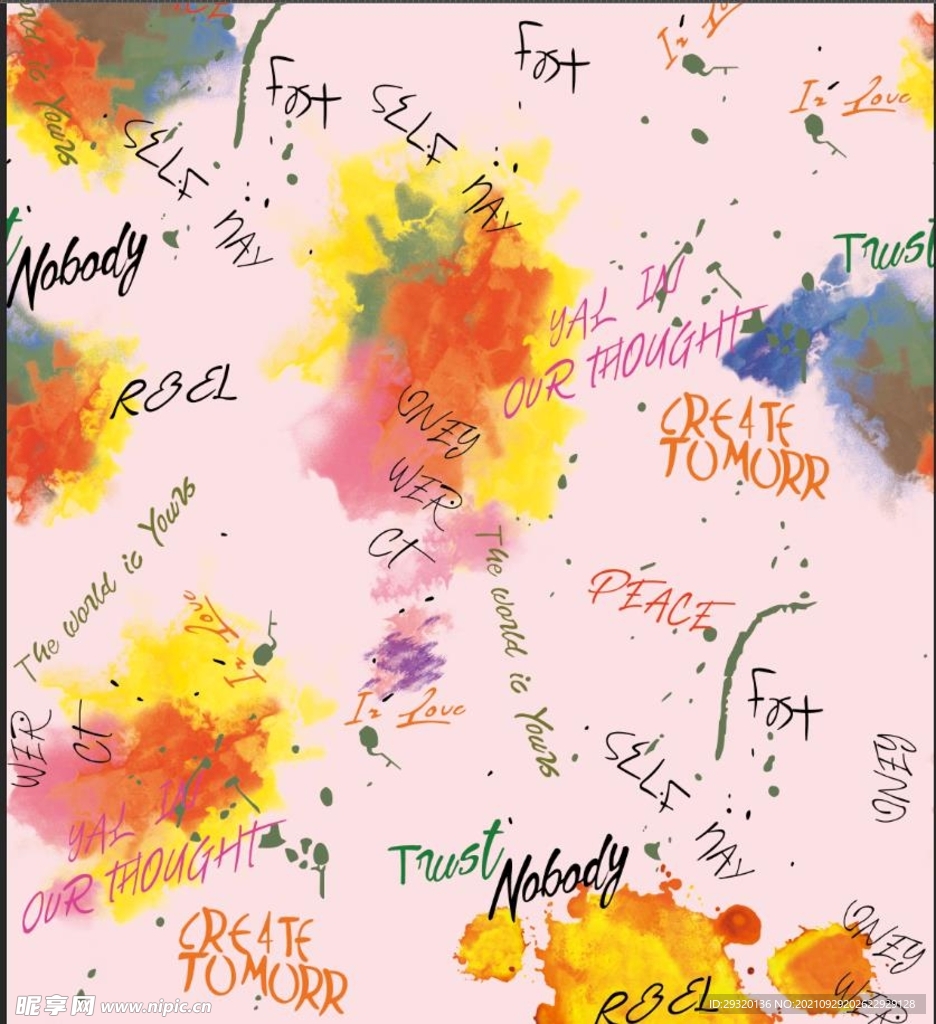 In Love
Fast
Fast
SELF
SELF
In Love
The world is Yours
NAY
NAY
Trust
Nobody
YAL IN
OUR THOUGHT
REBEL
CRE4TE
TOMURR
ONEY
WER
CT
The world is Yours
The world is Yours
PEACE
In Love
In Love
Fast
WER
CT
SELF
GNEY
YAL IN
OUR THOUGHT
NAY
Trust
Nobody
CRE4TE
TOMURR
GNEY
WER
REBEL
昵享网 www.nipic.cn
ID:29320136 NO:20210929202622929128